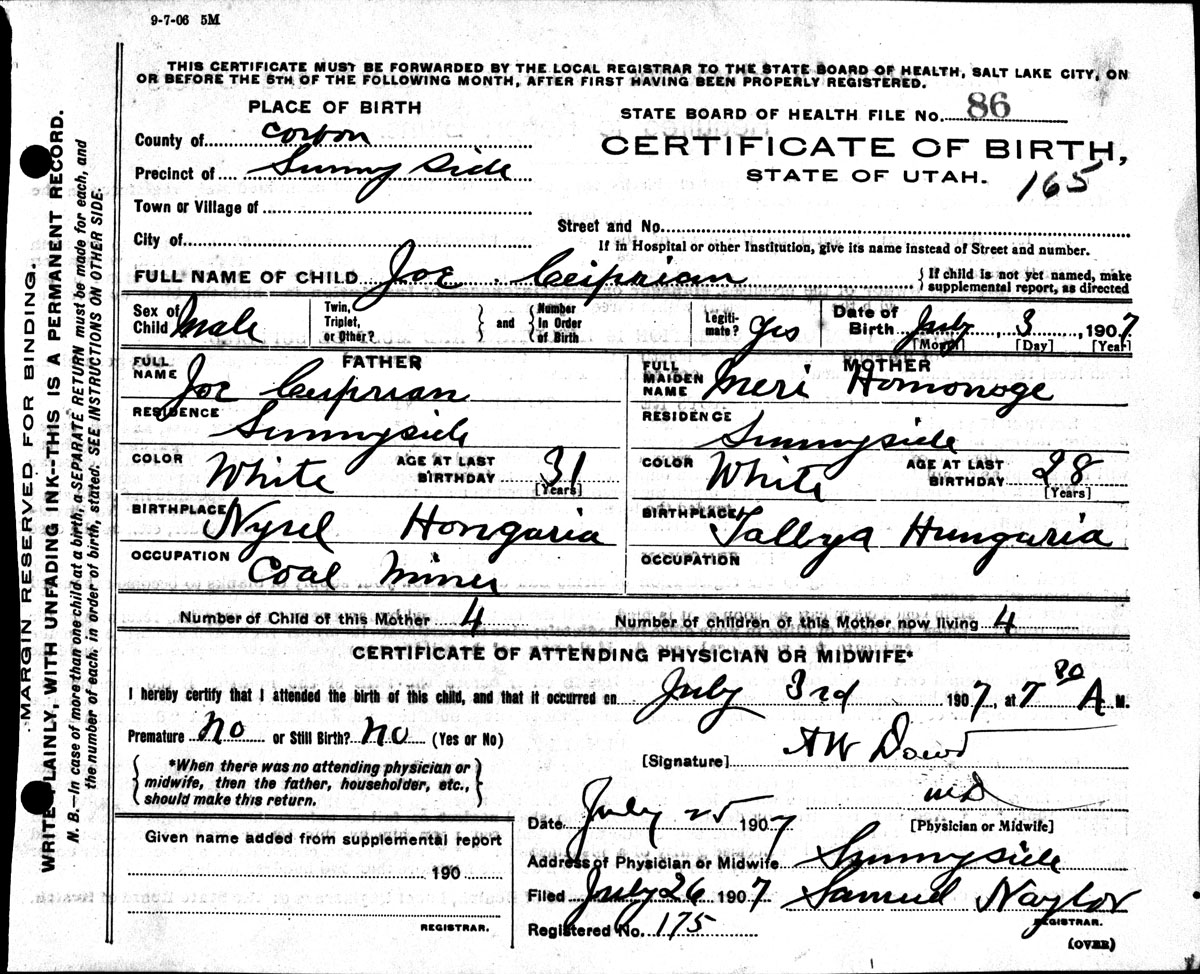 9-7-06 5M
THIS CERTIFICATE MUST BE FORWARDED BY THE LOCAL REGISTRAR TO THE STATE BOARD OF HEALTH, SALT LAKE CITY, ON
OR BEFORE THE 5TH OF THE FOLLOWING MONTH, AFTER FIRST HAVING BEEN PROPERLY REGISTERED.
PLACE OF BIRTH
STATE BOARD OF HEALTH FILE No. 86
County of Corbon
CERTIFICATE OF BIRTH,
Precinct of Sunny side
STATE OF UTAH. 165
Town or Village of
Street and No.
City of
If in Hospital or other Institution, give its name instead of Street and number.
FULL NAME OF CHILD Joe Ceiprian
If child is not yet named, make
supplemental report, as directed
Sex of Child Male
Twin, Triplet, or Other? and Number in Order of Birth
Legitimate? yes
Date of Birth July 3, 1907
[Month] [Day] [Year]
FATHER
MOTHER
FULL NAME Joe Ceiprian
FULL MAIDEN NAME Meri Homonoge
RESIDENCE Sunnyside
RESIDENCE Sunnyside
COLOR White AGE AT LAST BIRTHDAY 31 [Years]
COLOR White AGE AT LAST BIRTHDAY 28 [Years]
BIRTHPLACE Nysel Hongaria
BIRTHPLACE Tallya Hungaria
OCCUPATION Coal Miner
OCCUPATION
Number of Child of this Mother 4 Number of children of this Mother now living 4
CERTIFICATE OF ATTENDING PHYSICIAN OR MIDWIFE*
I hereby certify that I attended the birth of this child, and that it occurred on July 3rd 1907, at 7 30 A M.
Premature No or Still Birth? No (Yes or No)
[Signature] A W Dowd
*When there was no attending physician or
midwife, then the father, householder, etc.,
should make this return.
MD
Date July 25 1907 [Physician or Midwife]
Given name added from supplemental report
Address of Physician or Midwife Sunnyside
190
Filed July 26 1907 Samuel Naylor
REGISTRAR.
REGISTRAR.
Registered No. 175
(OVER)
MARGIN RESERVED FOR BINDING.
WRITE PLAINLY, WITH UNFADING INK--THIS IS A PERMANENT RECORD.
N. B.—In case of more than one child at a birth, a SEPARATE RETURN must be made for each, and
the number of each, in order of birth, stated. SEE INSTRUCTIONS ON OTHER SIDE.